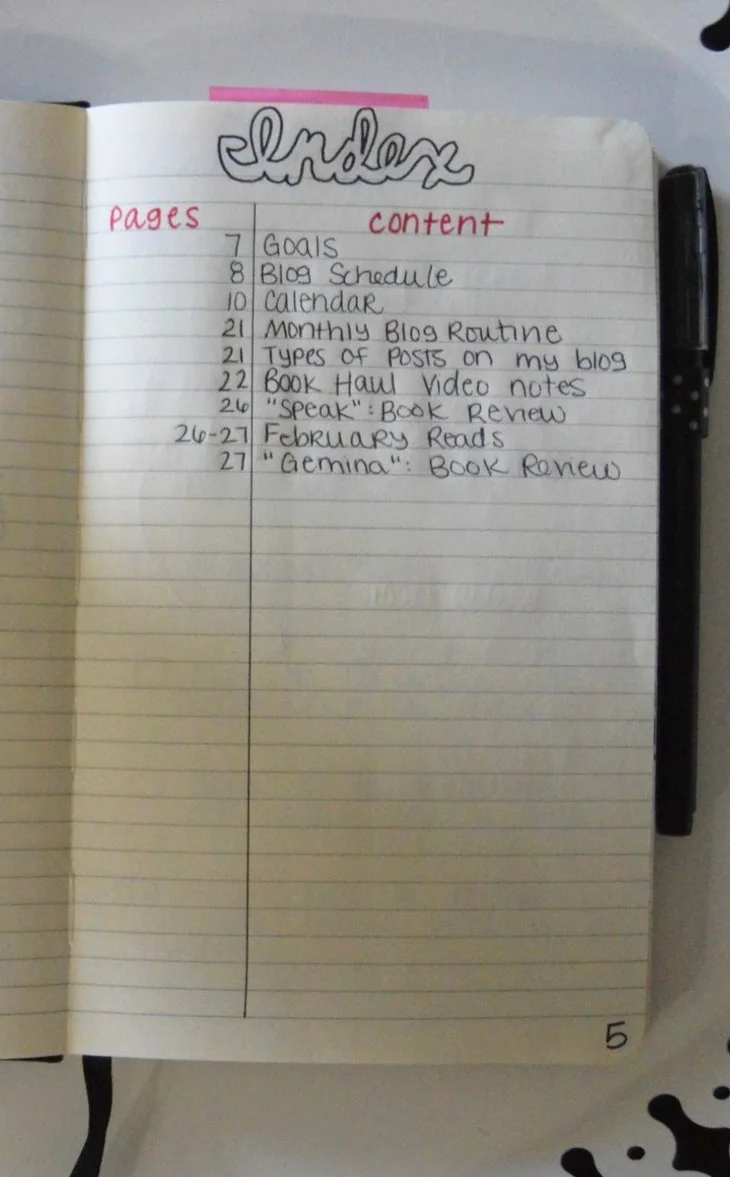 Index
pages content
7 Goals
8 Blog Schedule
10 Calendar
21 Monthly Blog Routine
21 Types of Posts on my blog
22 Book Haul Video notes
26 "Speak": Book Review
26-27 February Reads
27 "Gemina": Book Review
5